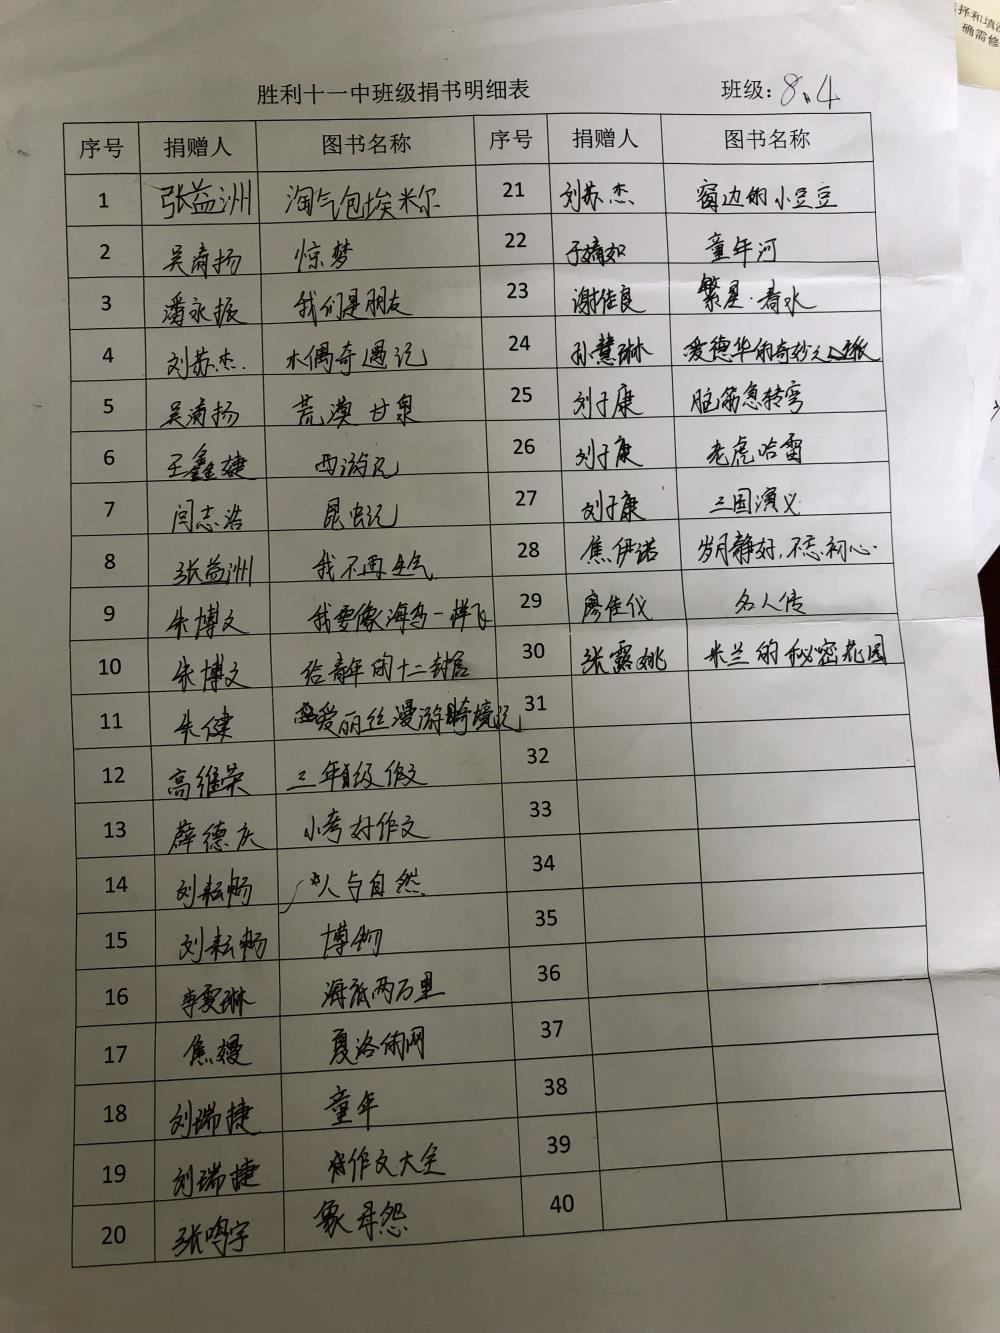 择和填
确需修
胜利十一中班级捐书明细表 班级：8.4
序号 捐赠人 图书名称 序号 捐赠人 图书名称
1 张益洲 淘气包埃米尔 21 刘苏杰 窗边的小豆豆
2 吴 扬 惊梦 22 于 如 童年河
3 潘永振 我们是朋友 23 谢佳良 繁星·春水
4 刘苏杰. 木偶奇遇记 24 孙慧琳 爱德华的奇妙之 旅
5 吴 扬 荒漠甘泉 25 刘子康 脑筋急转弯
6 王鑫婕 西游记 26 刘子康 老虎哈雷
7 闫志浩 昆虫记 27 刘子康 三国演义
8 张益洲 我不再生气 28 焦伊诺 岁月静好,不忘初心.
9 朱博文 我要像海鸟一样飞 29 廖佳仪 名人传
10 朱博文 给青年的十二封信 30 张露姚 米兰的秘密花园
11 朱健 爱丽丝漫游 境记 31
12 高维荣 三年级作文 32
13 薛德庆 小考好作文 33
14 刘耘畅 人与自然 34
15 刘耘畅 博物 35
16 李雯琳 海底两万里 36
17 焦嫚 夏洛的网 37
18 刘瑞捷 童年 38
19 刘瑞捷 作文大全 39
20 张鸣宇 象 怨 40